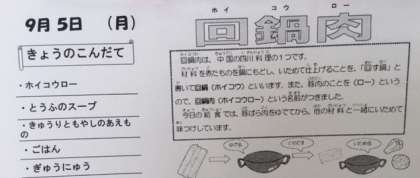 9月5日　(月)
きょうのこんだて
・ホイコウロー
・とうふのスープ
・きゅうりともやしのあえもの
・ごはん
・ぎゅうにゅう
ホイ　コウ　ロー
回鍋肉
回鍋肉は、中国の四川料理の1つです。
材料を煮たものを鍋にもどし、いためて仕上げることを、「回す鍋」と
書いて回鍋（ホイコウ）といいます。また、豚肉のことを（ロー）という
ので、回鍋肉（ホイコウロー）という名前がつきました。
今日の給食では、豚ばら肉をゆでてから、他の材料と一緒にいためて
味つけしています。
ゆでる
いためる